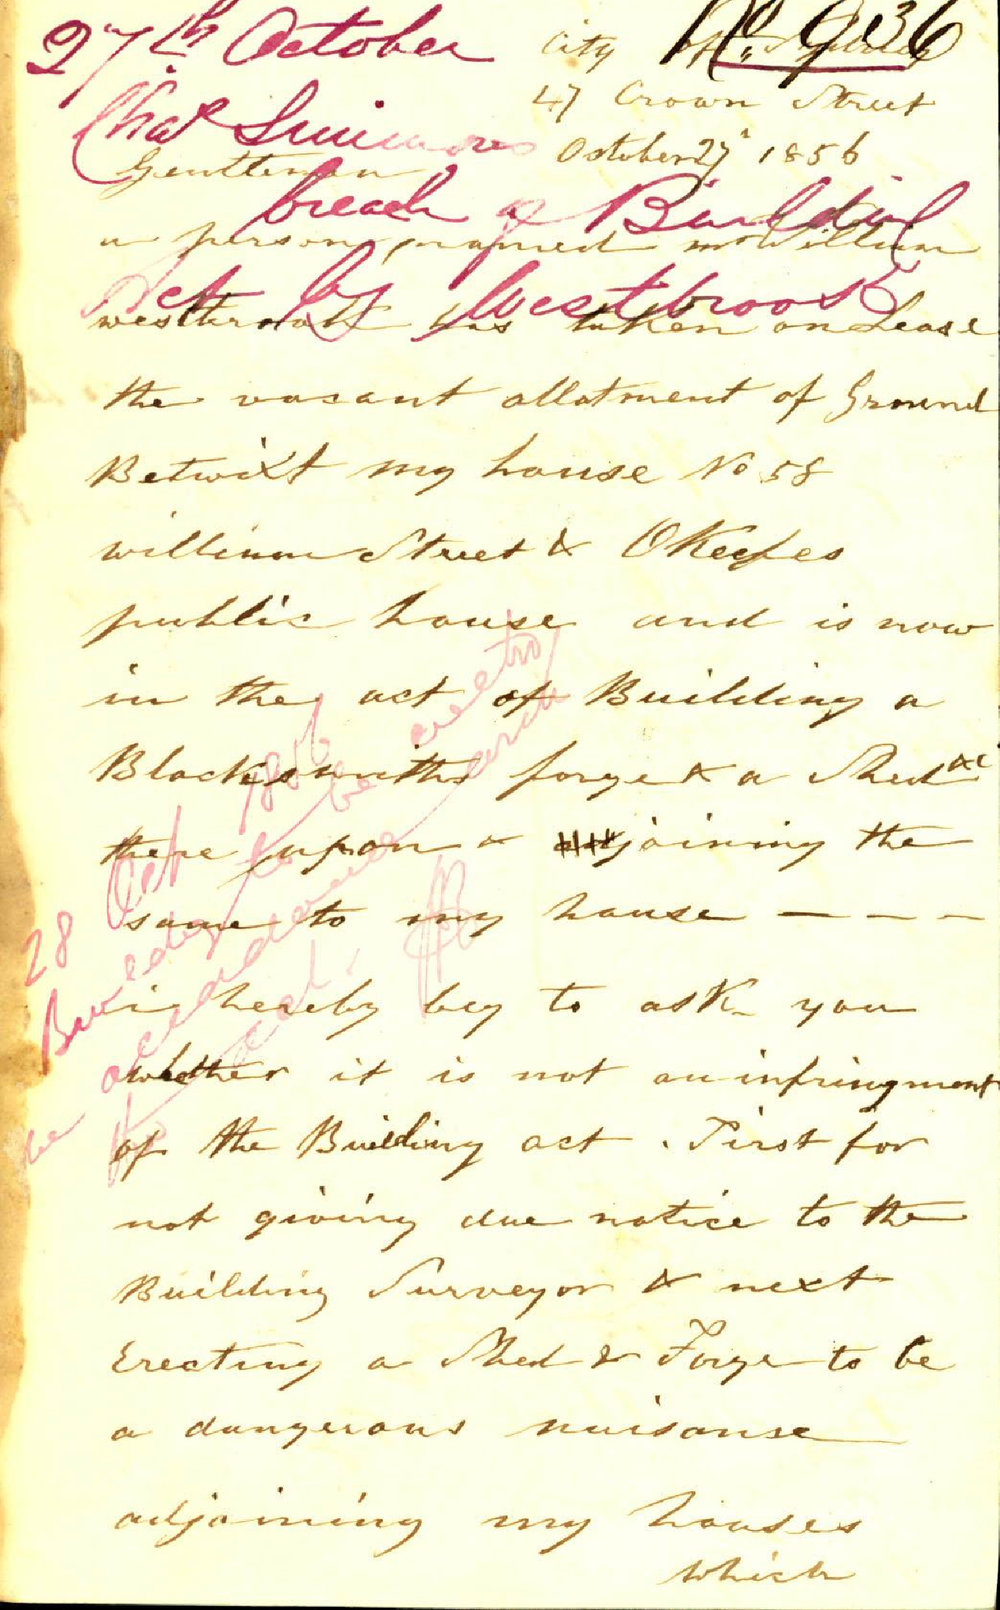 27th October
No 936
City of Sydney
47 Crown Street
Chas Simmons
October 27th 1856
Gentlemen
breach of Building
a person named Mr William
Act by Westbrook
westbrook has taken on Lease
the vacant allotment of Ground
Betwixt my house No 58
william Street & OKeefes
public house and is now
in the act of Building a
Blacksmiths forge & a Shed &c
there upon & joining the
same to my house - - -
i hereby beg to ask you
whether it is not an infringment
of the Building act . First for
not giving due notice to the
Building Surveyor & next
Erecting a Shed & Forge to be
a dangerous nuisanse
adjoining my houses
which
28 Oct 1856
Building to be erected
in accordance with
the act.